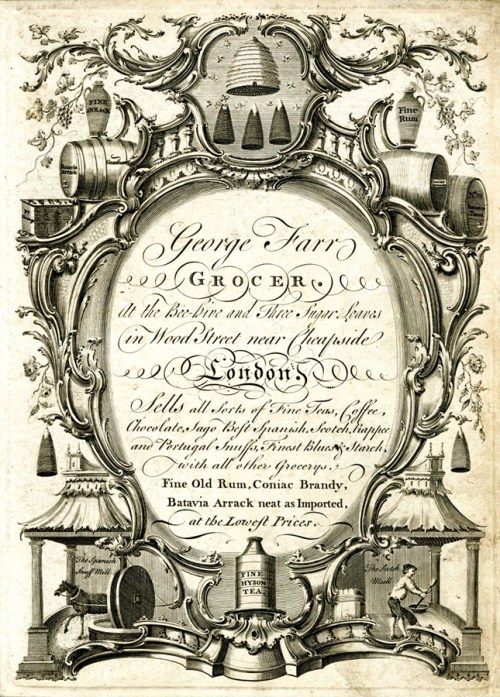 FINE
ARRACK
Fine
Rum
George Farr
GROCER.
At the Bee-hive and Three Sugar Loaves
in Wood Street near Cheapside
London,
Sells all Sorts of Fine Teas, Coffee,
Chocolate, Sago Beſt Spanish, Scotch, Rappee
and Portugal Snuffs, Finest Blues & Starch,
with all other Grocerys.
Fine Old Rum, Coniac Brandy,
Batavia Arrack neat as Imported,
at the Loweſt Prices.
The Spanish
Snuff Mill
FINE
HYSON
TEA
The Scotch
Mull